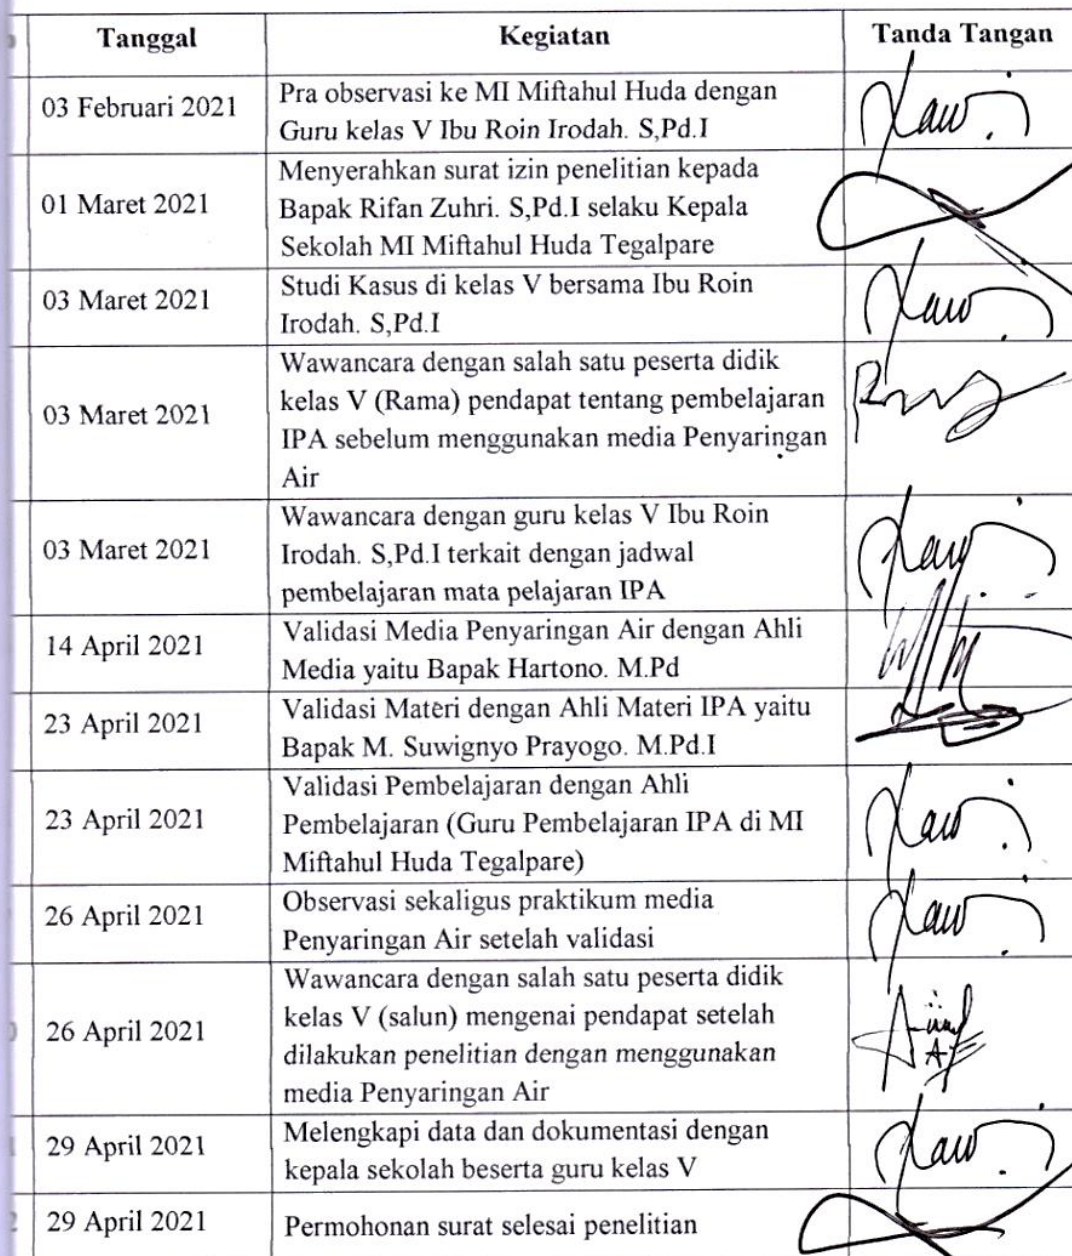 Tanggal Kegiatan Tanda Tangan
03 Februari 2021
Pra observasi ke MI Miftahul Huda dengan
Guru kelas V Ibu Roin Irodah. S,Pd.I
01 Maret 2021
Menyerahkan surat izin penelitian kepada
Bapak Rifan Zuhri. S,Pd.I selaku Kepala
Sekolah MI Miftahul Huda Tegalpare
03 Maret 2021
Studi Kasus di kelas V bersama Ibu Roin
Irodah. S,Pd.I
03 Maret 2021
Wawancara dengan salah satu peserta didik
kelas V (Rama) pendapat tentang pembelajaran
IPA sebelum menggunakan media Penyaringan
Air
03 Maret 2021
Wawancara dengan guru kelas V Ibu Roin
Irodah. S,Pd.I terkait dengan jadwal
pembelajaran mata pelajaran IPA
14 April 2021
Validasi Media Penyaringan Air dengan Ahli
Media yaitu Bapak Hartono. M.Pd
23 April 2021
Validasi Materi dengan Ahli Materi IPA yaitu
Bapak M. Suwignyo Prayogo. M.Pd.I
23 April 2021
Validasi Pembelajaran dengan Ahli
Pembelajaran (Guru Pembelajaran IPA di MI
Miftahul Huda Tegalpare)
26 April 2021
Observasi sekaligus praktikum media
Penyaringan Air setelah validasi
26 April 2021
Wawancara dengan salah satu peserta didik
kelas V (salun) mengenai pendapat setelah
dilakukan penelitian dengan menggunakan
media Penyaringan Air
29 April 2021
Melengkapi data dan dokumentasi dengan
kepala sekolah beserta guru kelas V
29 April 2021
Permohonan surat selesai penelitian